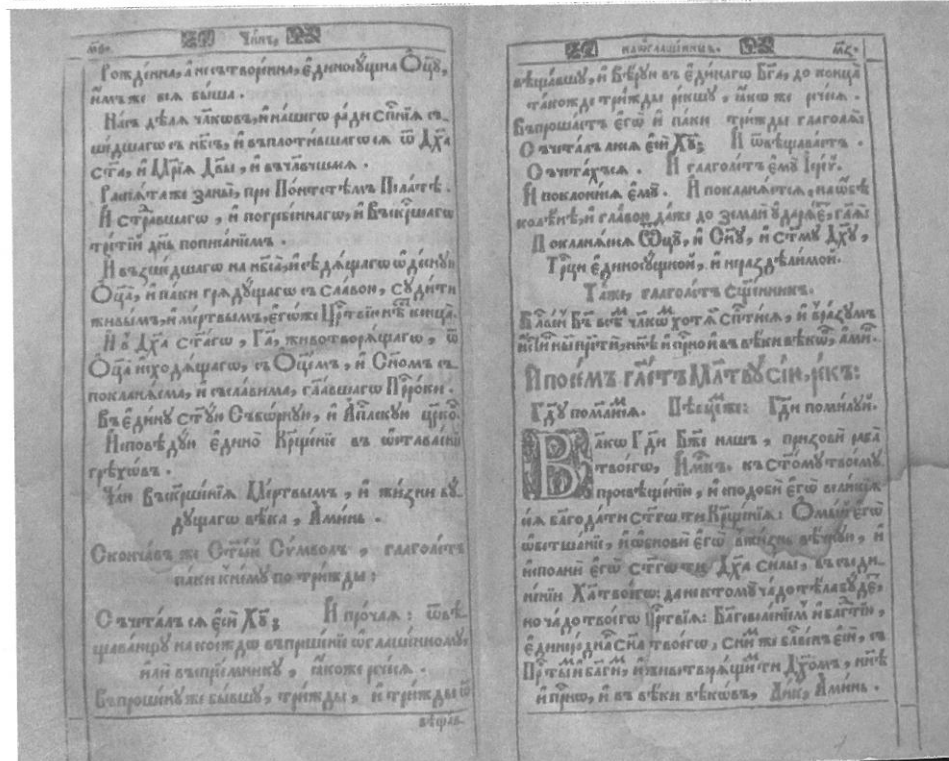 Чи́нъ,
Рожде́нна, а҆ несътворе́нна, є҆дїносꙋ́щна Ѻ҆ц҃ꙋ,
и҆́мъ же всѧ бы́ша.
На́съ дѣлѧ чл҃кѡвъ, и҆ на́шегѡ ради сп҃нїѧ съ-
ше́дшагѡ съ нб҃съ, и҆ въплоти́вшагѡсѧ ѿ Дх҃а
ст҃а, и҆ Мр҃їѧ Дв҃ы, и҆ въчл҃вчшасѧ.
Распѧ́та же за ны̀, при По́нтстѣмъ Пїла́тѣ.
И҆ стр҃авшагѡ, и҆ погребе́ннагѡ, и҆ Въскр҃шагѡ
тре́тїй дн҃ь пописа́нїемъ.
И҆ възше́дшагѡ на нб҃са, и҆ сѣдѧ́щагѡ ѡ҆деснꙋю
Ѻ҆ц҃а, и҆ па́ки грѧдꙋ́щагѡ съ сла́вою, сꙋди́ти
живы́мъ, и҆ ме́ртвымъ, є҆гѡ́же Цр҃твїю нѣ́ конца̀.
И҆ в̾ Дх҃а ст҃а́гѡ, Гд҃а, животворѧ́щагѡ, ѿ
Ѻ҆ц҃а и҆сходѧ́щагѡ, съ Ѻ҆ц҃е́мъ, и҆ Сн҃омъ съ-
поклонѧ́ема, и҆ съсла́вима, гл҃авшагѡ Прⷪ҇роки.
Въ є҆ди́нꙋ ст҃ꙋю Съборнꙋю, и҆ А҆пⷭ҇лскꙋю цр҃ко́.
И҆сповѣ́дꙋю є҆ди́но Крⷳ҇щенїе въ ѡ҆ставле́нїе
грѣхѡ́въ.
Ча́ю Въскрⷭ҇ше́нїѧ Ме́ртвымъ, и҆ жи́зни бꙋ́-
дꙋщагѡ вѣ́ка, А҆ми́нь.
Сконча́въ же Ст҃ый Сѵ́мволъ, глаго́летъ
па́ки к̾ немꙋ̀ по три́жды:
Съчета́лъ сѧ є҆сѝ Хꙋ҃; И҆ про́чаѧ: ѿвѣ-
щава́ющꙋ на ко́еждо въпроше́нїе ѡ҆глаше́нномꙋ,
и҆лѝ въспрїе́мникꙋ, ꙗ҆́коже рече́сѧ.
Въпроше́нꙋ же бы́вшꙋ, три́жды, и҆ три́жды ѿ
вѣщав-
на ѡ҆глаше́нныхъ.
вѣща́вшꙋ, и҆ Вѣ́рꙋю въ є҆ди́нагѡ Бг҃а, до конца̀
та́кожде три́жды ре́кшꙋ, ꙗ҆́кѡ же рече́сѧ.
Въпроша́етъ є҆го̀ и҆ па́ки три́жды глаго́лѧ:
Съчета́лъ ли сѧ є҆сѝ Хꙋ҃; И҆ ѿвѣщава́етъ.
Съчета́хсѧ. И҆ глаго́летъ є҆мꙋ̀ І҆ере́й.
И҆ поклони́сѧ є҆мꙋ̀. И҆ поклонѧ́етсѧ, на ѻ҆́бѣ
колѣ́нѣ, и҆ главо́ю да́же до землѝ ᲂу҆дарѧ́ѧ, гл҃ѧ:
Покланѧ́юсѧ Ѻ҆ц҃ꙋ, и҆ Сн҃ꙋ, и҆ ст҃мꙋ Дх҃ꙋ,
Трⷪ҇ци є҆диносꙋ́щной, и҆ неразⸯдѣли́мой.
Та́же, глаго́летъ сщ҃е́нникъ.
Блг҃ве́нъ Бг҃ъ всѣⷨ чл҃кѡⷨ хотѧ̀ сп҃ти́сѧ, и҆ в̾ ра́зꙋмъ
и҆́стинны прїитѝ, нн҃ѣ и҆ при́снѡ и҆ въ вѣ́ки вѣкѡ́въ, а҆ми́.
И҆ посе́мъ гл҃етъ Мл҃твꙋ сїю̀, рекъ:
Гд҃ꙋ помо́лимсѧ. Пѣвцы́ же: Гд҃и поми́лꙋй.
Влⷣкѡ Гд҃и Бж҃е нашъ, призовѝ раба̀
твоегѡ̀, И҆́мⷬ҇къ. къ ст҃о́мꙋ твоемꙋ̀
просвѣще́нїю, и҆ сподо́би є҆го̀ вели́кїѧ
сеѧ̀ благода́ти ст҃гѡ ти Крⷳ҇ще́нїѧ: Ѡ҆мы́й є҆гѡ̀
ѡ҆бетша́нїе, и҆ ѡ҆бновѝ є҆го̀ в̾ жи́знь вѣ́чнꙋю, и҆
и҆спо́лни є҆го̀ ст҃гѡ тѝ Дх҃а си́лы, въ съеди-
не́нїе Хⷭ҇а твоегѡ̀: да не ктомꙋ̀ ча́до тѣ́ла бꙋ́детъ,
но ча́до твоегѡ̀ Цр҃твїѧ: Бл҃говоле́нїемъ и҆ блг҃тїю,
є҆диноро́днагѡ Сн҃а твоегѡ̀, с̾ ни́м же блг҃ве́нъ є҆сѝ, съ
Прⷭ҇ты́мъ и҆ бл҃ги́мъ, и҆ животворѧ́щимъ ти Дх҃омъ, нн҃ѣ
и҆ при́снѡ, и҆ въ вѣ́ки вѣкѡ́въ, Ли́къ, А҆ми́нь.